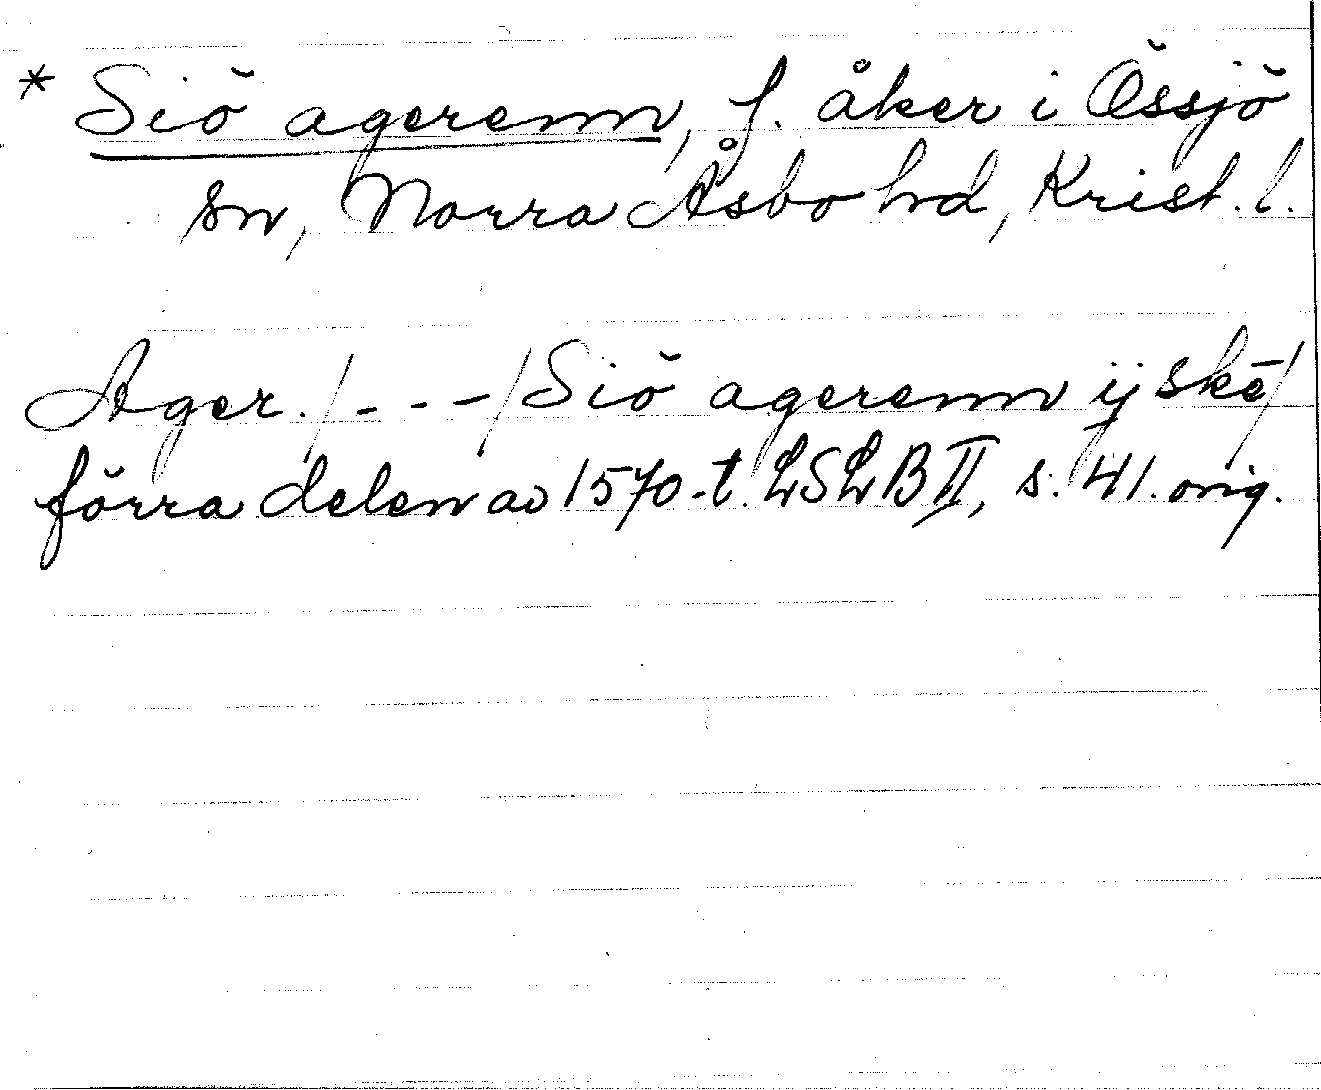 * Siö agerenn, f. åker i Össjö
sn, Norra Åsbo hd, Krist. l.
Ager. /---/ Siö agerenn ij skē/
förra delen av 1570-t. LSLB II, s. 41. orig.